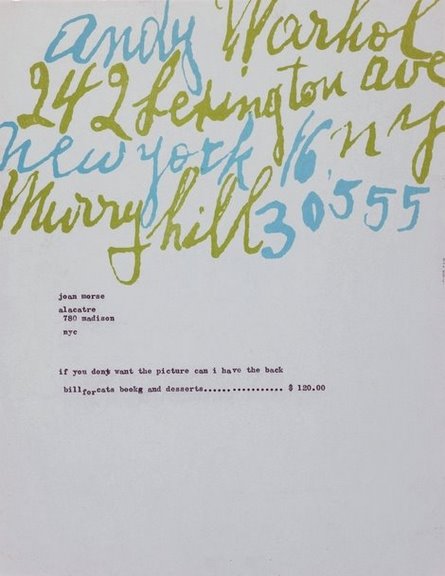 andy Warhol
242 Lexington ave
new york 16, n y
Murry hill 30555
joan morse
alacatre
780 madison
nyc
if you dont want the picture can i have the back
bill for cats bookg and desserts.................. $ 120.00